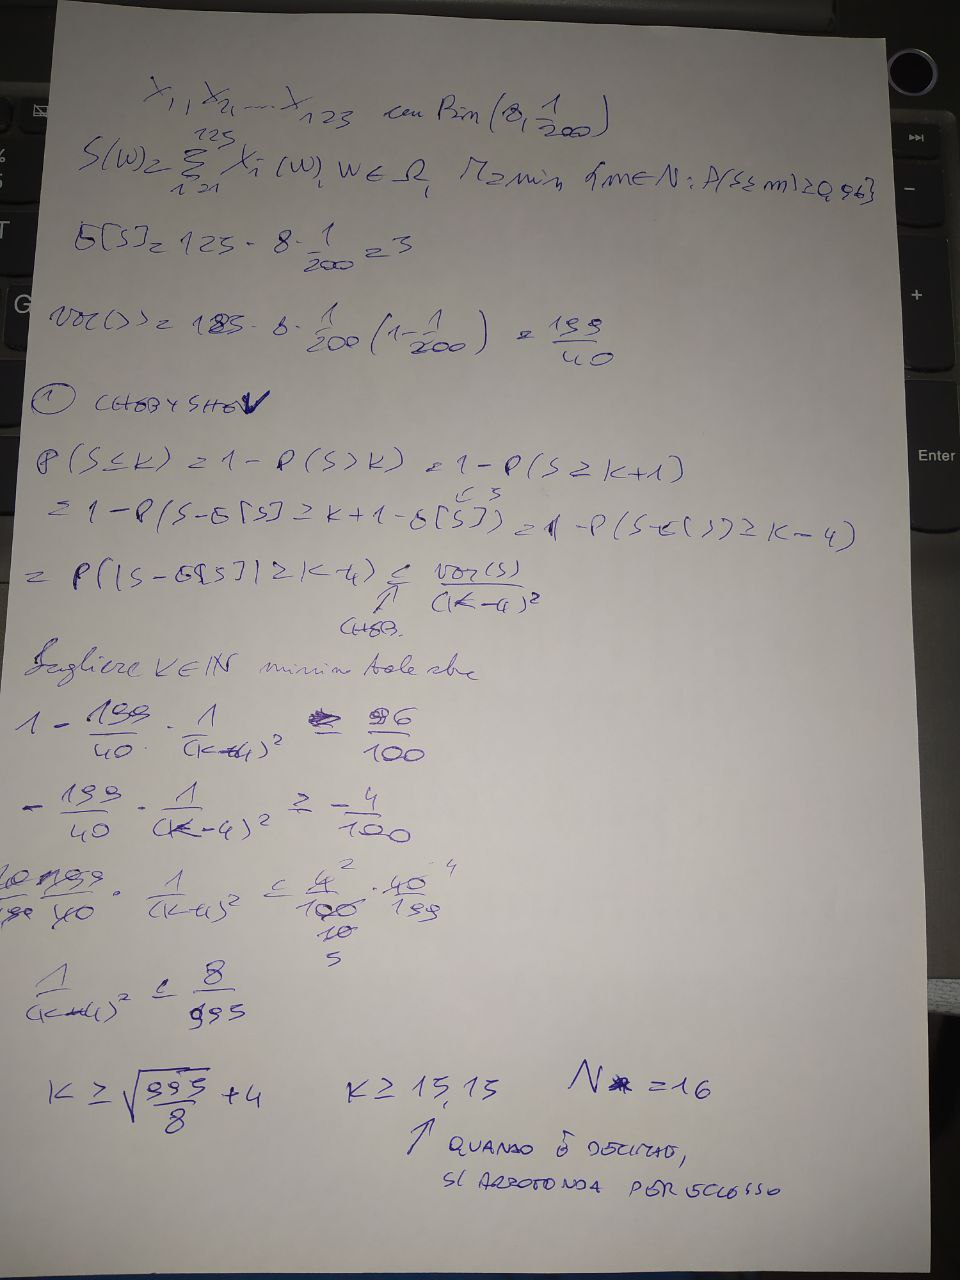 X₁, X₂, ... X₁₂₅ con Bin(8, 1/200)
S(W) = Σ_{i=1}^{125} Xi (W), W ∈ Ω, M = min {m ∈ N : P(S ≤ m) ≥ 0,96}
E[S] = 125 · 8 · 1/200 = 5
Var(S) = 125 · 8 · 1/200 (1 - 1/200) = 199/40
① CHEBYSHEV
P(S ≤ K) = 1 - P(S > K) = 1 - P(S ≥ K+1)
= 1 - P(S - E[S] ≥ K + 1 - E[S]) = 1 - P(S - E[S] ≥ K - 4)
= P(|S - E[S]| ≥ K - 4) ≤ Var(S)/(K-4)²
CHEB.
Scegliere K ∈ IN minimo tale che
1 - 199/40 · 1/(K-4)² ≥ 96/100
- 199/40 · 1/(K-4)² ≥ - 4/100
40/199 · 199/40 · 1/(K-4)² ≤ 4/100 · 40/199
1/(K-4)² ≤ 8/995
K ≥ √(995/8) + 4 K ≥ 15,15 N = 16
QUANDO È DECIMALE,
SI ARROTONDA PER ECCESSO
Enter